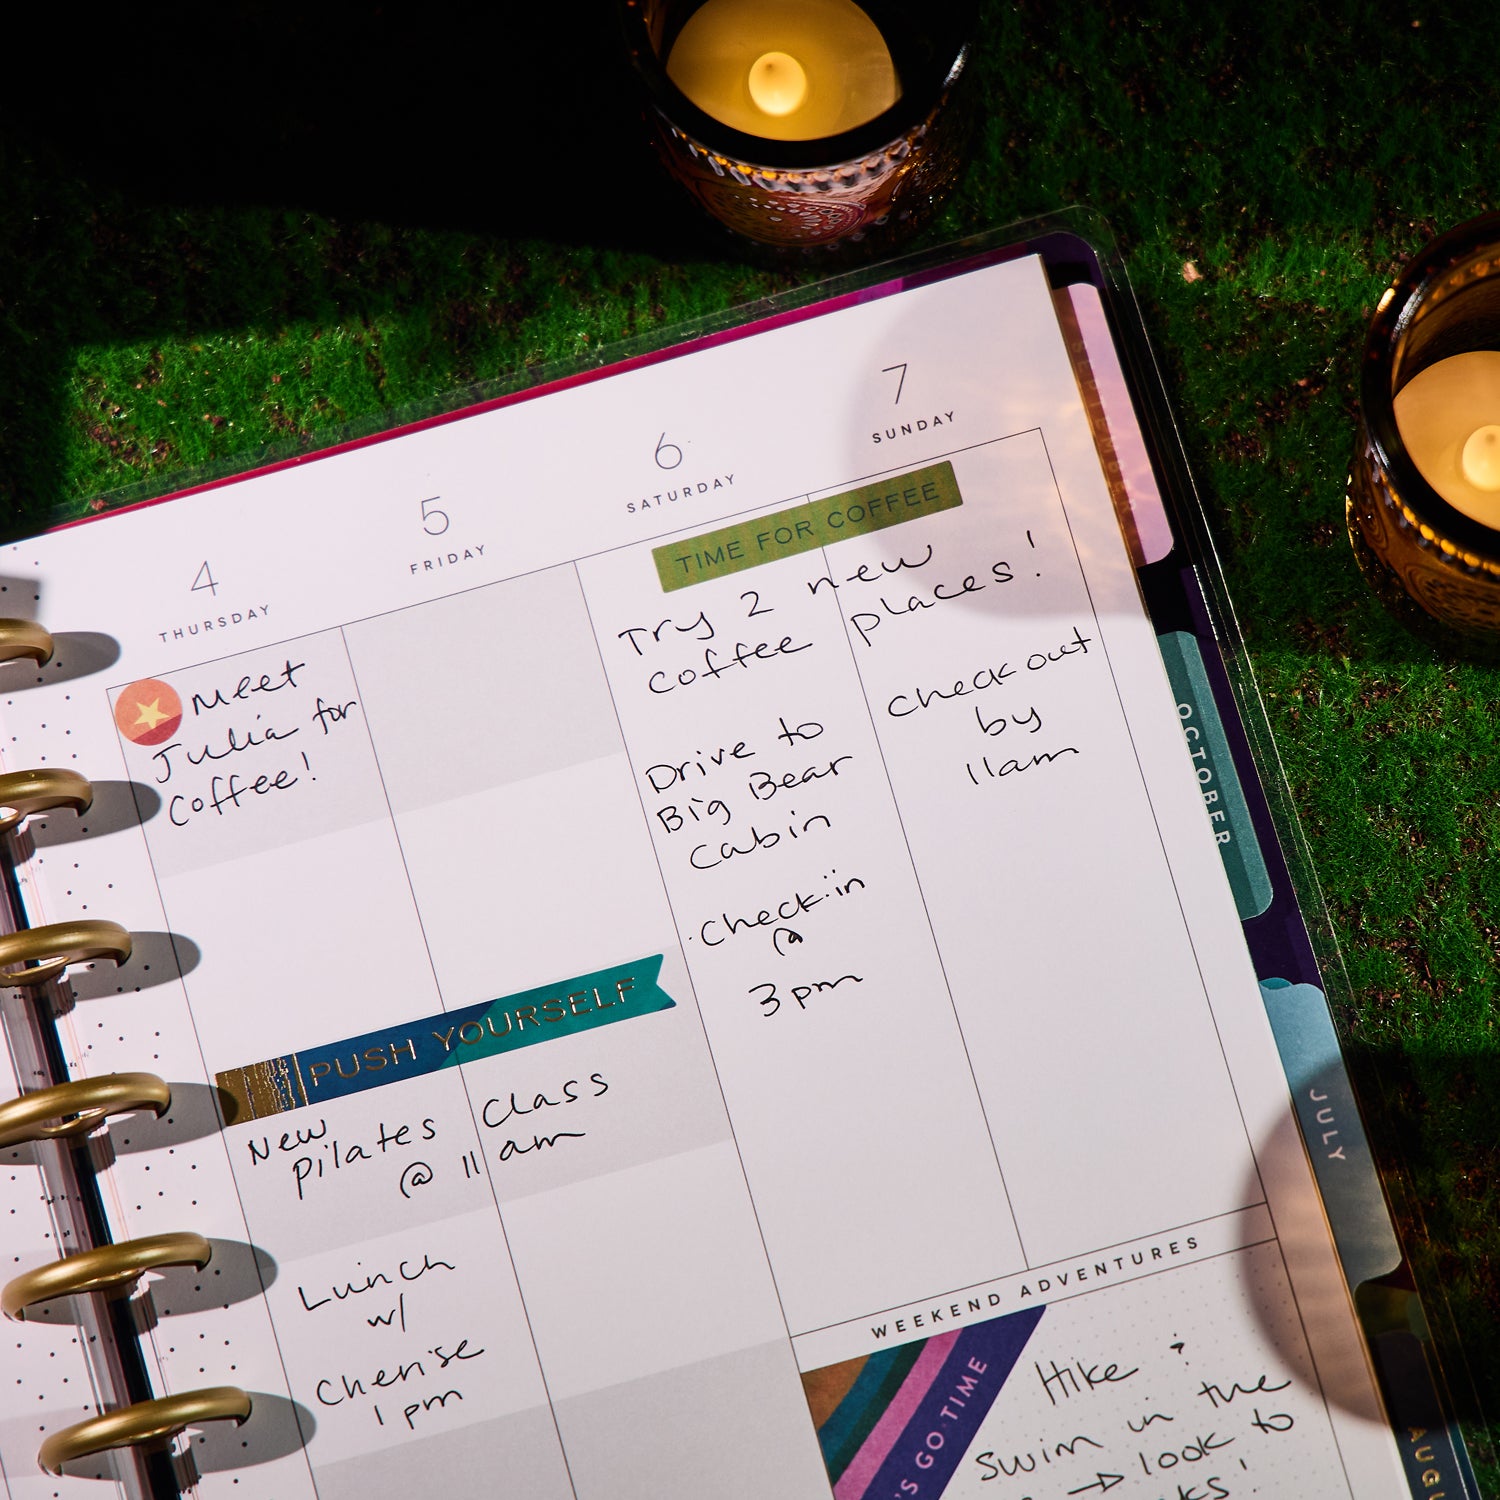 4
THURSDAY
5
FRIDAY
6
SATURDAY
7
SUNDAY
Meet
Julia for
Coffee!
PUSH YOURSELF
New
Pilates Class
@ 11 am
Lunch
w/
Cherise
1 pm
TIME FOR COFFEE
Try 2 new
coffee places!
Drive to
Big Bear
Cabin
Check-in
@
3 pm
Check out
by
11am
WEEKEND ADVENTURES
'S GO TIME
Hike &
Swim in the
→ look to
SEPTEMBER
OCTOBER
JULY